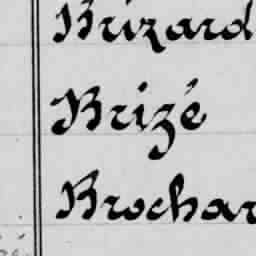 Brizard
Brizé
Brochar